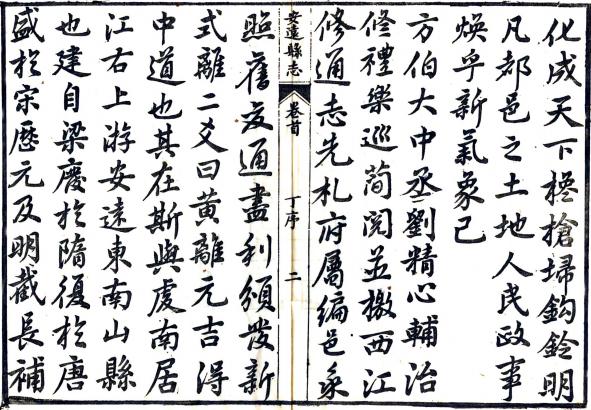 化成天下欃槍埽鈎鈐明
凡都邑之土地人民政事
煥乎新氣象已
方伯大中丞劉精心輔治
修禮樂巡簡閱並檄西江
修通志先札府屬編邑乘
安遠縣志 卷首 丁序 二
照舊变通盡利頒發新
式離二爻曰黃離元吉得
中道也其在斯與虔南居
江右上游安遠東南山縣
也建自梁廢於隋復於唐
盛於宋歷元及明截長補